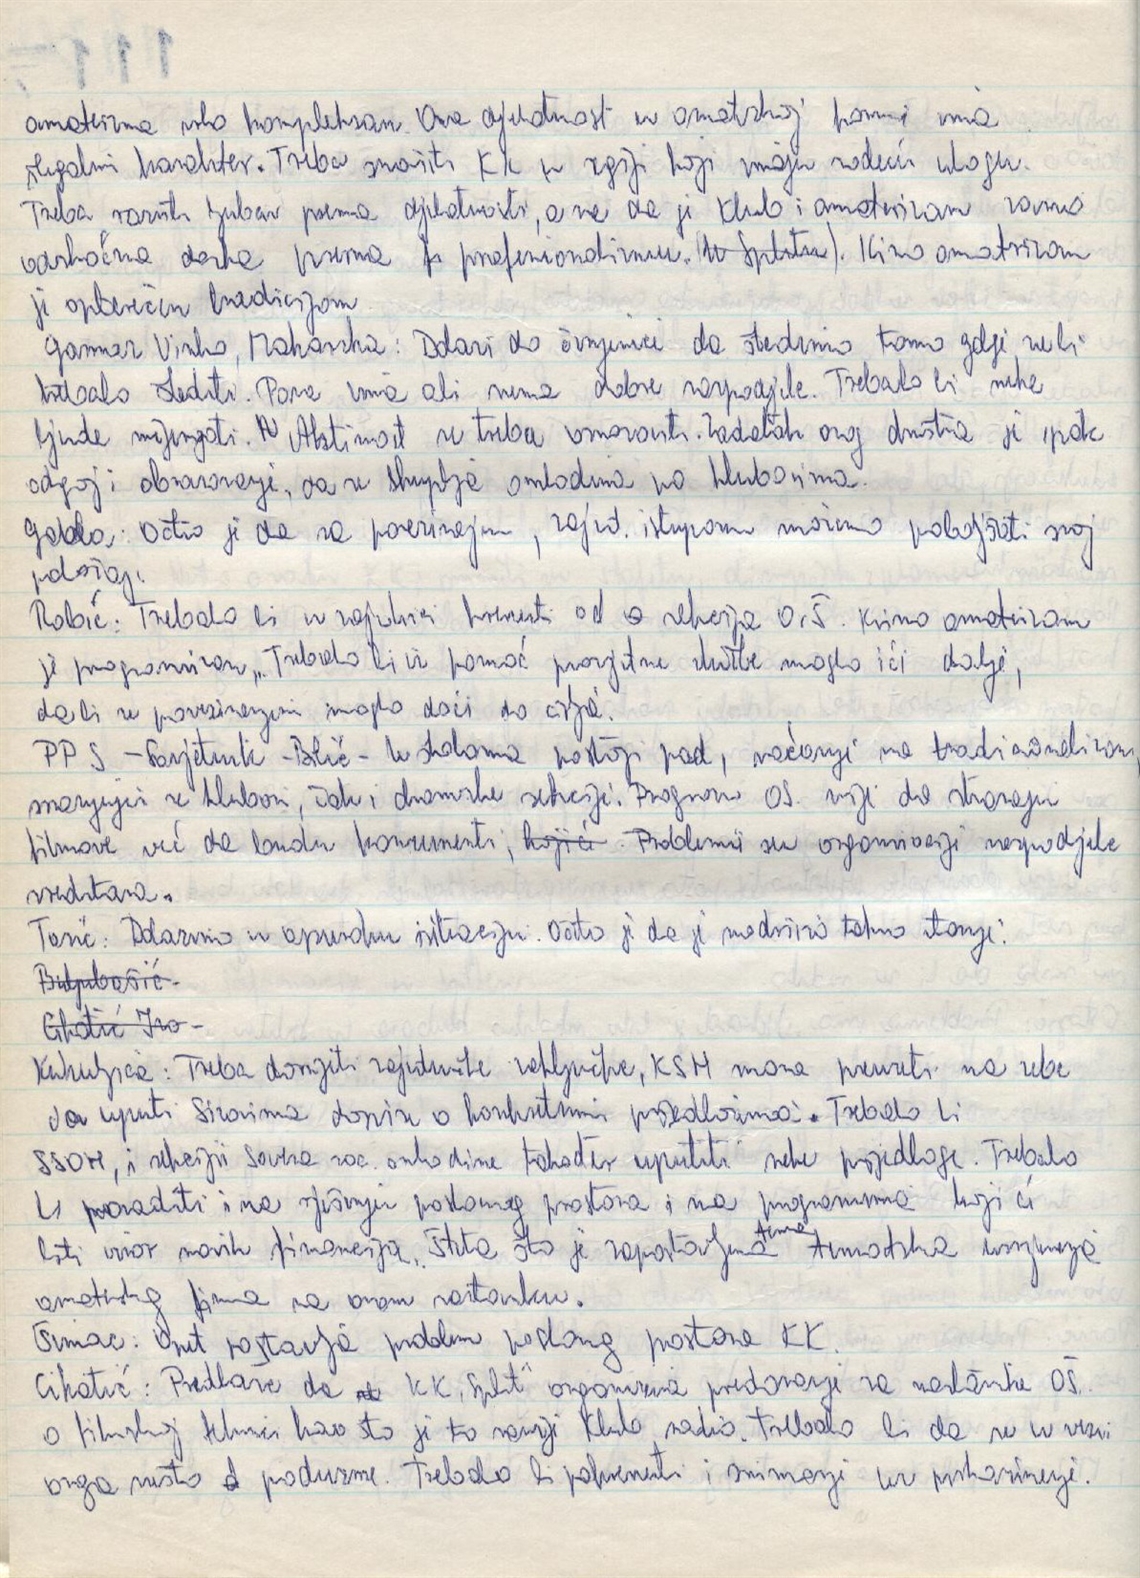 amaterizma vrlo kompleksan. Ova djelatnost u amaterskoj formi ima
ilegalni karakter. Treba snažiti KK u regiji koji imaju vodeću ulogu.
Treba razviti ljubav prema djelatnosti, a ne da je Klub i amaterizam samo
odskočna daska prema profesionalizmu. (U Splitu). Kino amaterizam
je opterećen tradicijom
Vinko, Makarska: Dolazi do činjenice da štedimo tamo gdje ne bi
trebalo štediti. Para ima ali nema dobre raspodjele. Trebalo bi neke
ljude mijenjati. Aktivnost se treba omasoviti. Zadatak ovog društva je ipak
odgoj i obrazovanje, da se skuplja omladina po klubovima.
Očito je da sa povezivanjem, zajed. istupom možemo poboljšati svoj
položaj.
Robić: Trebalo bi u zajednici krenuti od sekcija O.Š. Kino amaterizam
je programiran. Trebalo bi uz pomoć prosvjetne službe moglo ići dalje,
da bi se povezivanjem moglo doći do cilja.
PPS - Savjetnik - - U školama postoji pad, vraćanje na tradicionalizam,
smanjuju se klubovi, čak i dramske sekcije. Program OŠ. nije da stvaraju
filmove već da budu konzumenti, kojić. Problemi su organizacije raspodjele
sredstava.
Tomić: Dolazimo u apsurdnu situaciju. Očito je da je nadošlo takvo stanje.
Buljubašić -
Cikatić Ivo -
Kukuljica: Treba donijeti zajedničke zaključke, KSH mora preuzeti na sebe
da uputi Sizovima dopise o konkretnim prijedlozima. Trebalo bi
SSOH, i sekciji Saveza soc. omladine također uputiti neke prijedloge. Trebalo
bi poraditi i na rješenju poslovnog prostora i na programima koji će
biti izvor novih financija. Šteta što je zapostavljena tema tematska usmjerenja
amaterskog filma na ovom sastanku.
Šimac: Opet postavlja problem poslovnog prostora KK.
Cikatić: Predlaže da KK „Split" organizira predavanje za nastavnike OŠ.
o filmskoj tehnici kao što je to ranije Klub radio. Trebalo bi da se u vezi
ovoga nešto poduzme. Trebalo bi pokrenuti i snimanje uz prikazivanje.